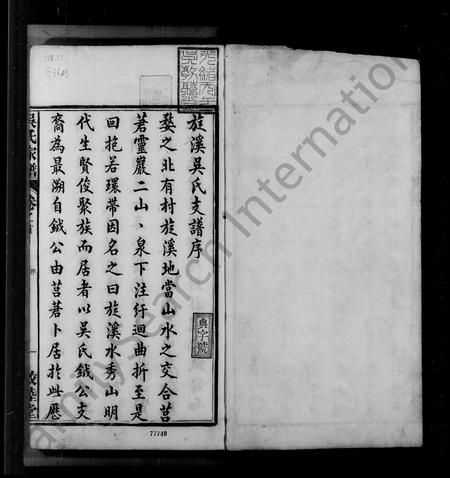 旋溪吳氏支譜序
婺之北有村旋溪地當山水之交合莒
莙靈巖二山泉下注紆迴曲折至是
回抱若環帶因名之曰旋溪水秀山明
代生賢俊聚族而居者以吳氏鉞公支
裔為最溯自鉞公由莒莙卜居於此歷
吳氏宗譜
卷之首
序
一
敦睦堂
典字號
77740
FamilySearch International